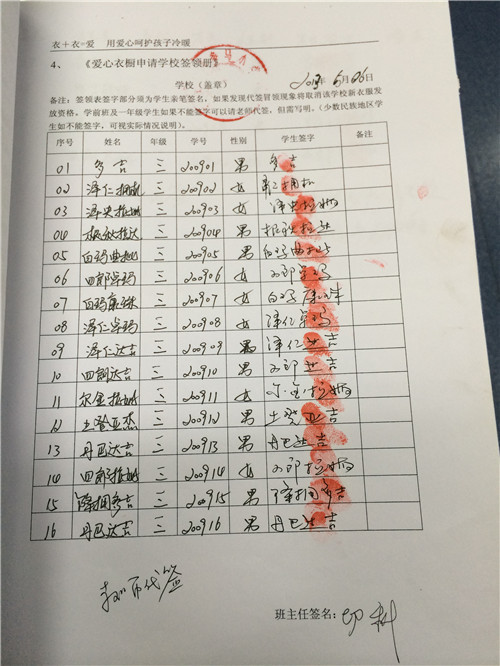 衣+衣=爱 用爱心呵护孩子冷暖
4、 《爱心衣橱申请学校签领册》
学校（盖章）
备注：签领表签字部分须为学生亲笔签名，如果发现代签冒领现象将取消该学校新衣服发
放资格。学前班及一年级学生如果不能签字可以请老师代签，但需写明。（少数民族地区学
生如不能签字，可视实际情况说明）。
序号 姓名 年级 学号 性别 学生签字 备注
01 多吉 三 200901 男 多吉
02 泽仁拥 三 200902 女 拥
03 泽央拉姆 三 200903 女 泽央拉姆
04 三 200904 男
05 白玛曲 三 200905 男 白玛曲
06 四郎宗玛 三 200906 女 四郎宗玛
07 白玛 三 200907 女 白玛
08 泽仁宗玛 三 200908 女 泽仁宗玛
09 泽仁达吉 三 200909 男 泽仁达吉
10 四郎达吉 三 200910 男 四郎达吉
11 尔金拉姆 三 200911 女 尔金拉姆
12 土登亚 三 200912 男 土登亚吉
13 丹巴达吉 三 200913 男 丹巴达吉
14 四郎拉姆 三 200914 女 四郎拉姆
15 拥多吉 三 200915 男 拥多吉
16 丹巴达吉 三 200916 男 丹巴达吉
代签
班主任签名：